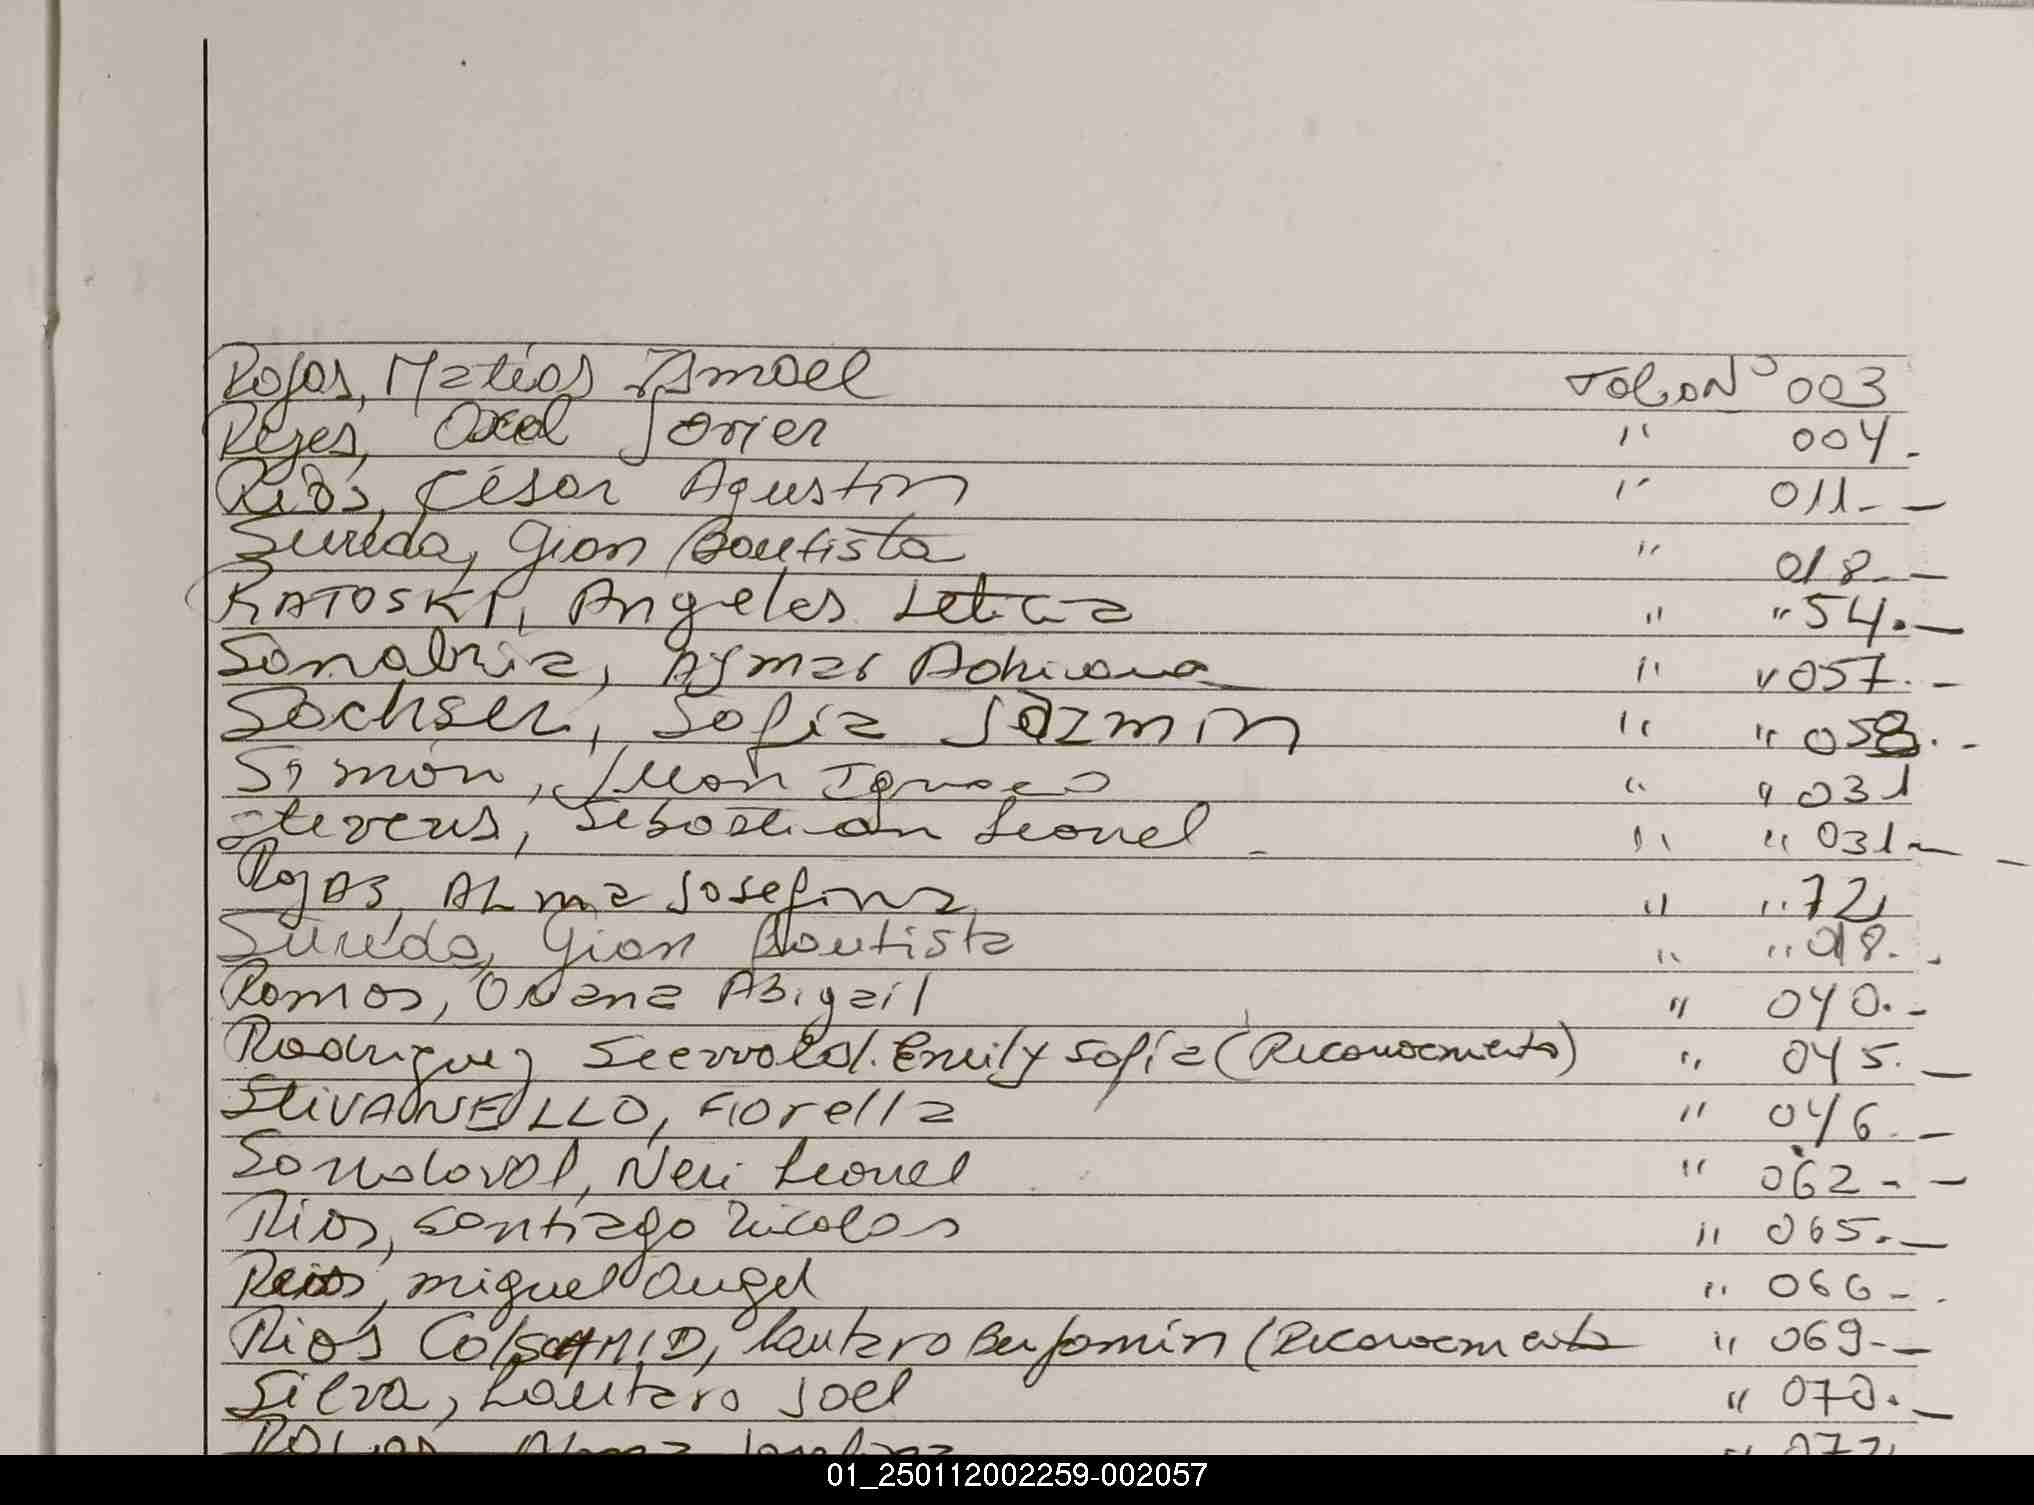 Rojas, Matías Ismael Folio Nº 003
Reyes, Axel Javier " 004.
Ríos, César Agustín " 011.-
Sureda, Gian Bautista " 018.-
RATOSKI, Angeles Leticia " " 54.-
Sanabria, Aymar Adriana " " 057.-
Sachser, Sofía Jazmín " " 058.-
Simón, Juan Ignacio " " 031
Stevens, Sebastian Leonel " " 031.-
Rojas, Alma Josefina " " 72
Sureda, Gian Bautista " " 018.-
Ramos, Oriana Abigail " 040.-
Rodriguez Seewald. Emily Sofía (Reconocimiento) " 045.-
StiVANELLO, Fiorella " 046.-
Sandoval, Neri Leonel " 062.-
Rios, Santiago Nicolas " 065.-
Rios, miguel Angel " 066-
Rios ColSCHMID, Lautaro Benjamin (Reconocimiento " 069.-
Silva, Lautaro Joel " 070.-
Alma Josefina " 072
01_250112002259-002057